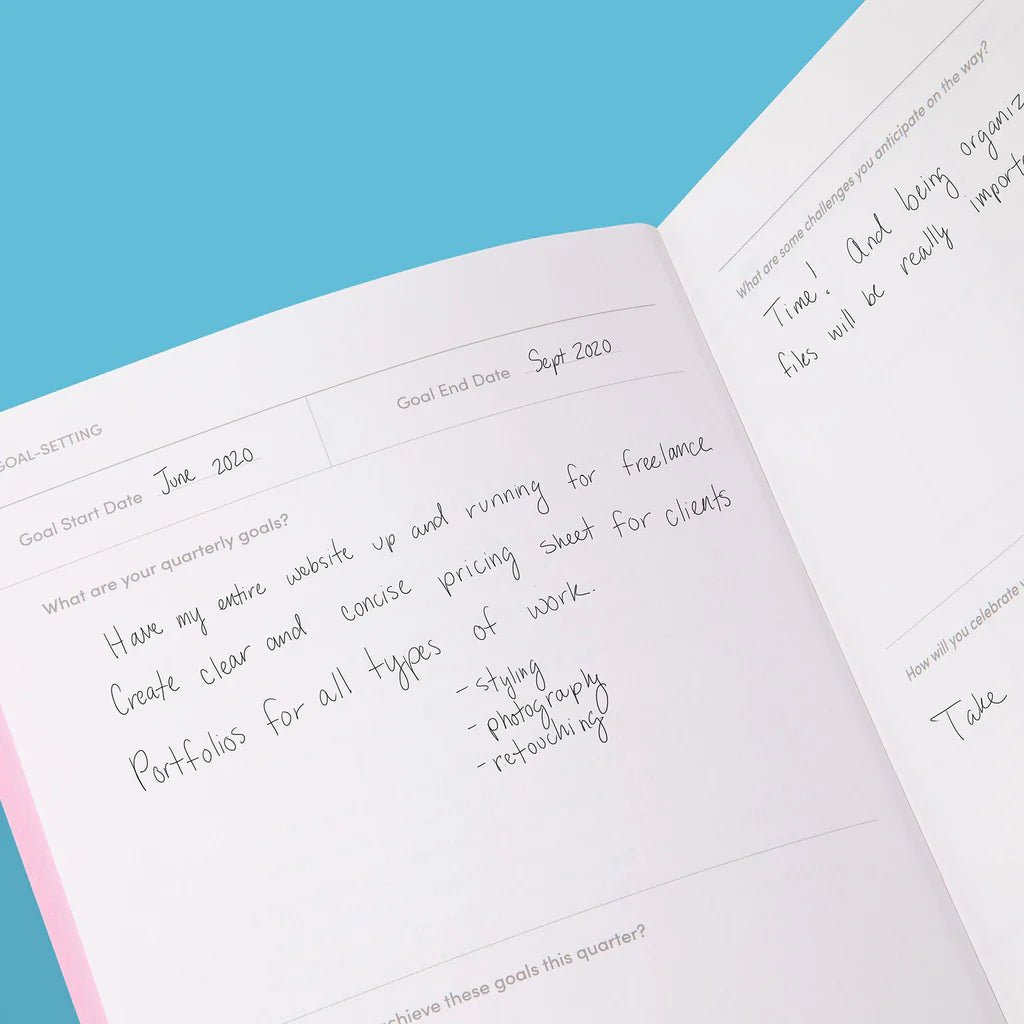 GOAL-SETTING
Goal Start Date June 2020
Goal End Date Sept 2020
What are your quarterly goals?
Have my entire website up and running for freelance
Create clear and concise pricing sheet for clients
Portfolios for all types of work.
- styling
- photography
- retouching
these goals this quarter?
What are some challenges you anticipate on the way?
Time! And being
files will be really
How will you celebrate
Take